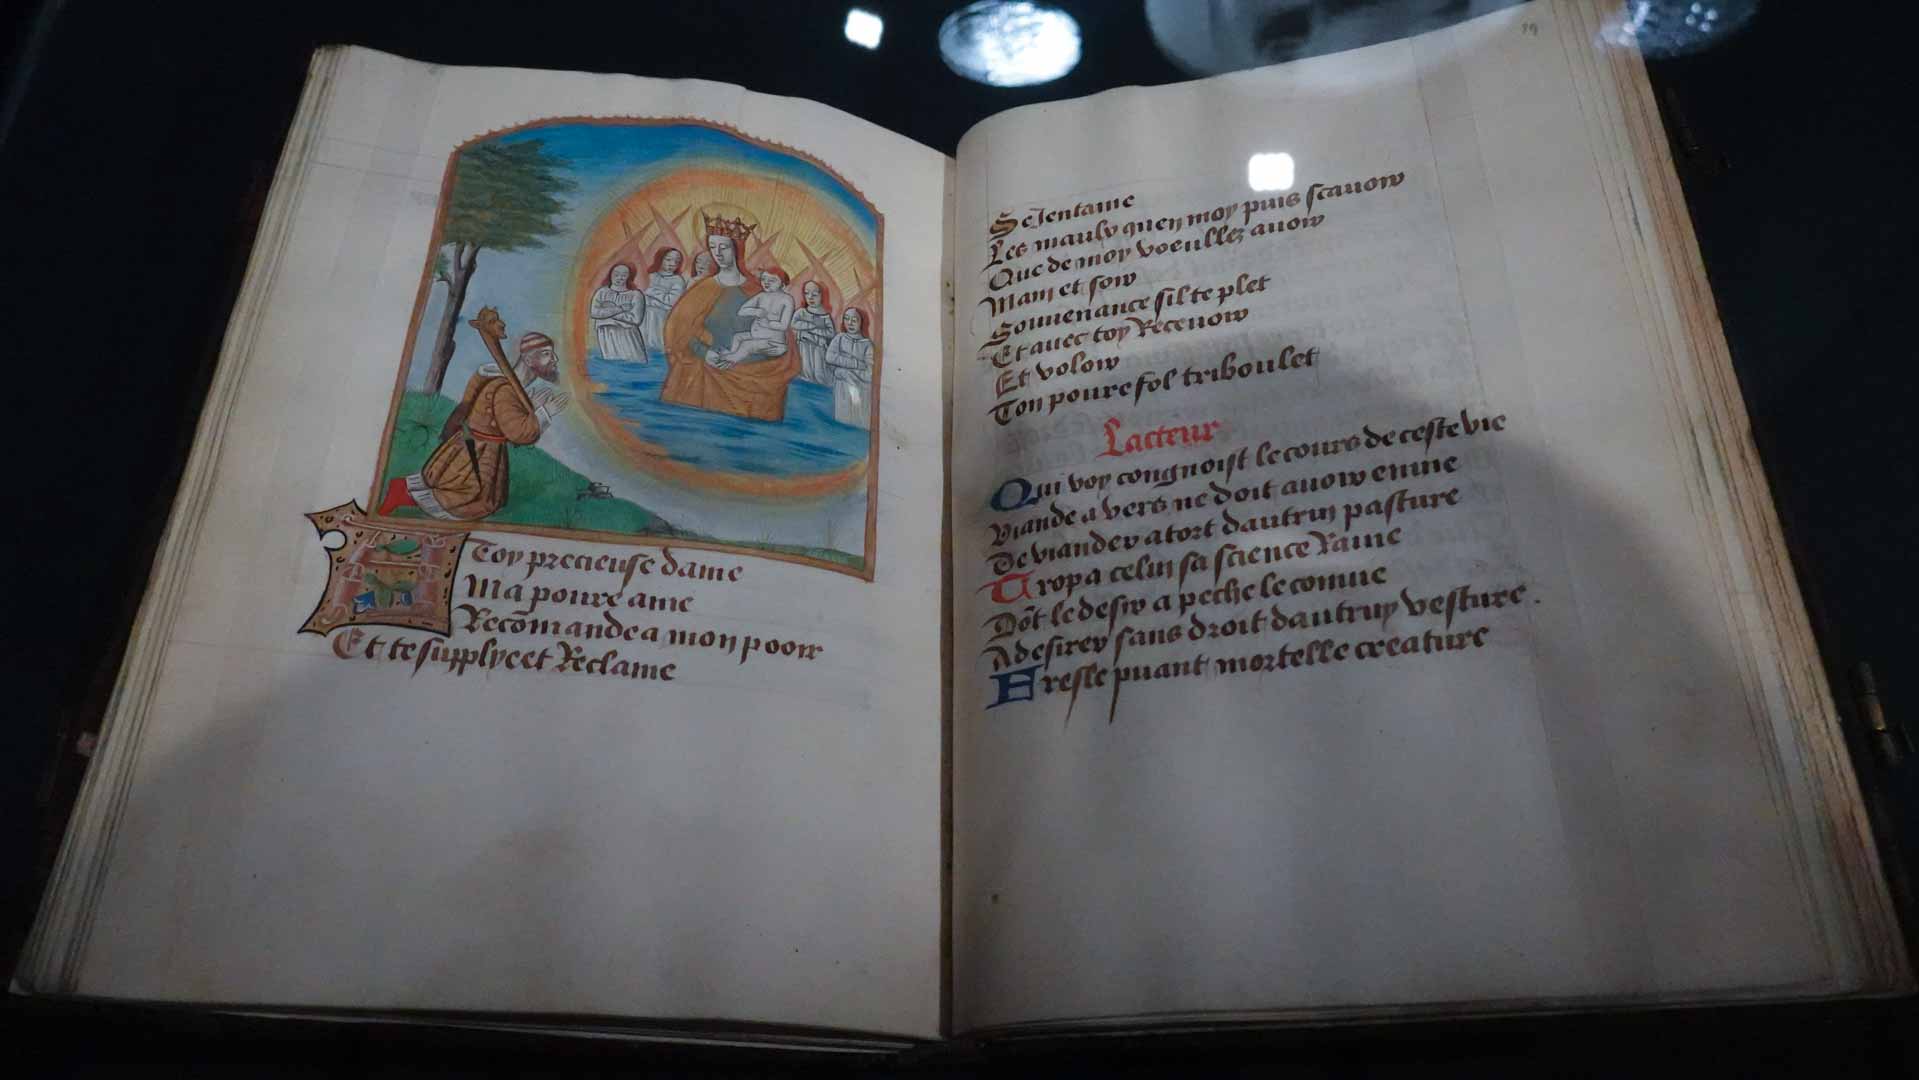 Toy precieuse dame
Ma poure ame
Recōmande a mon poow
Et te supplye et Reclame
89
Se Ientame
Les maulx quen moy puis scauow
Que de moy voeullez auow
Main et sow
Souuenance sil te plet
Et auec toy Receuow
Et volow
Ton poure fol triboulet
Lacteur
Qui voy congnoist le cours de ceste vie
Viande a vers ne doit auow enuie
De viander a tort dautruy pasture
Trop a celui sa science Rauie
Dōt le desir a peche le conuie
A desirer sans droit dautruy vesture.
Fresle puant mortelle creature